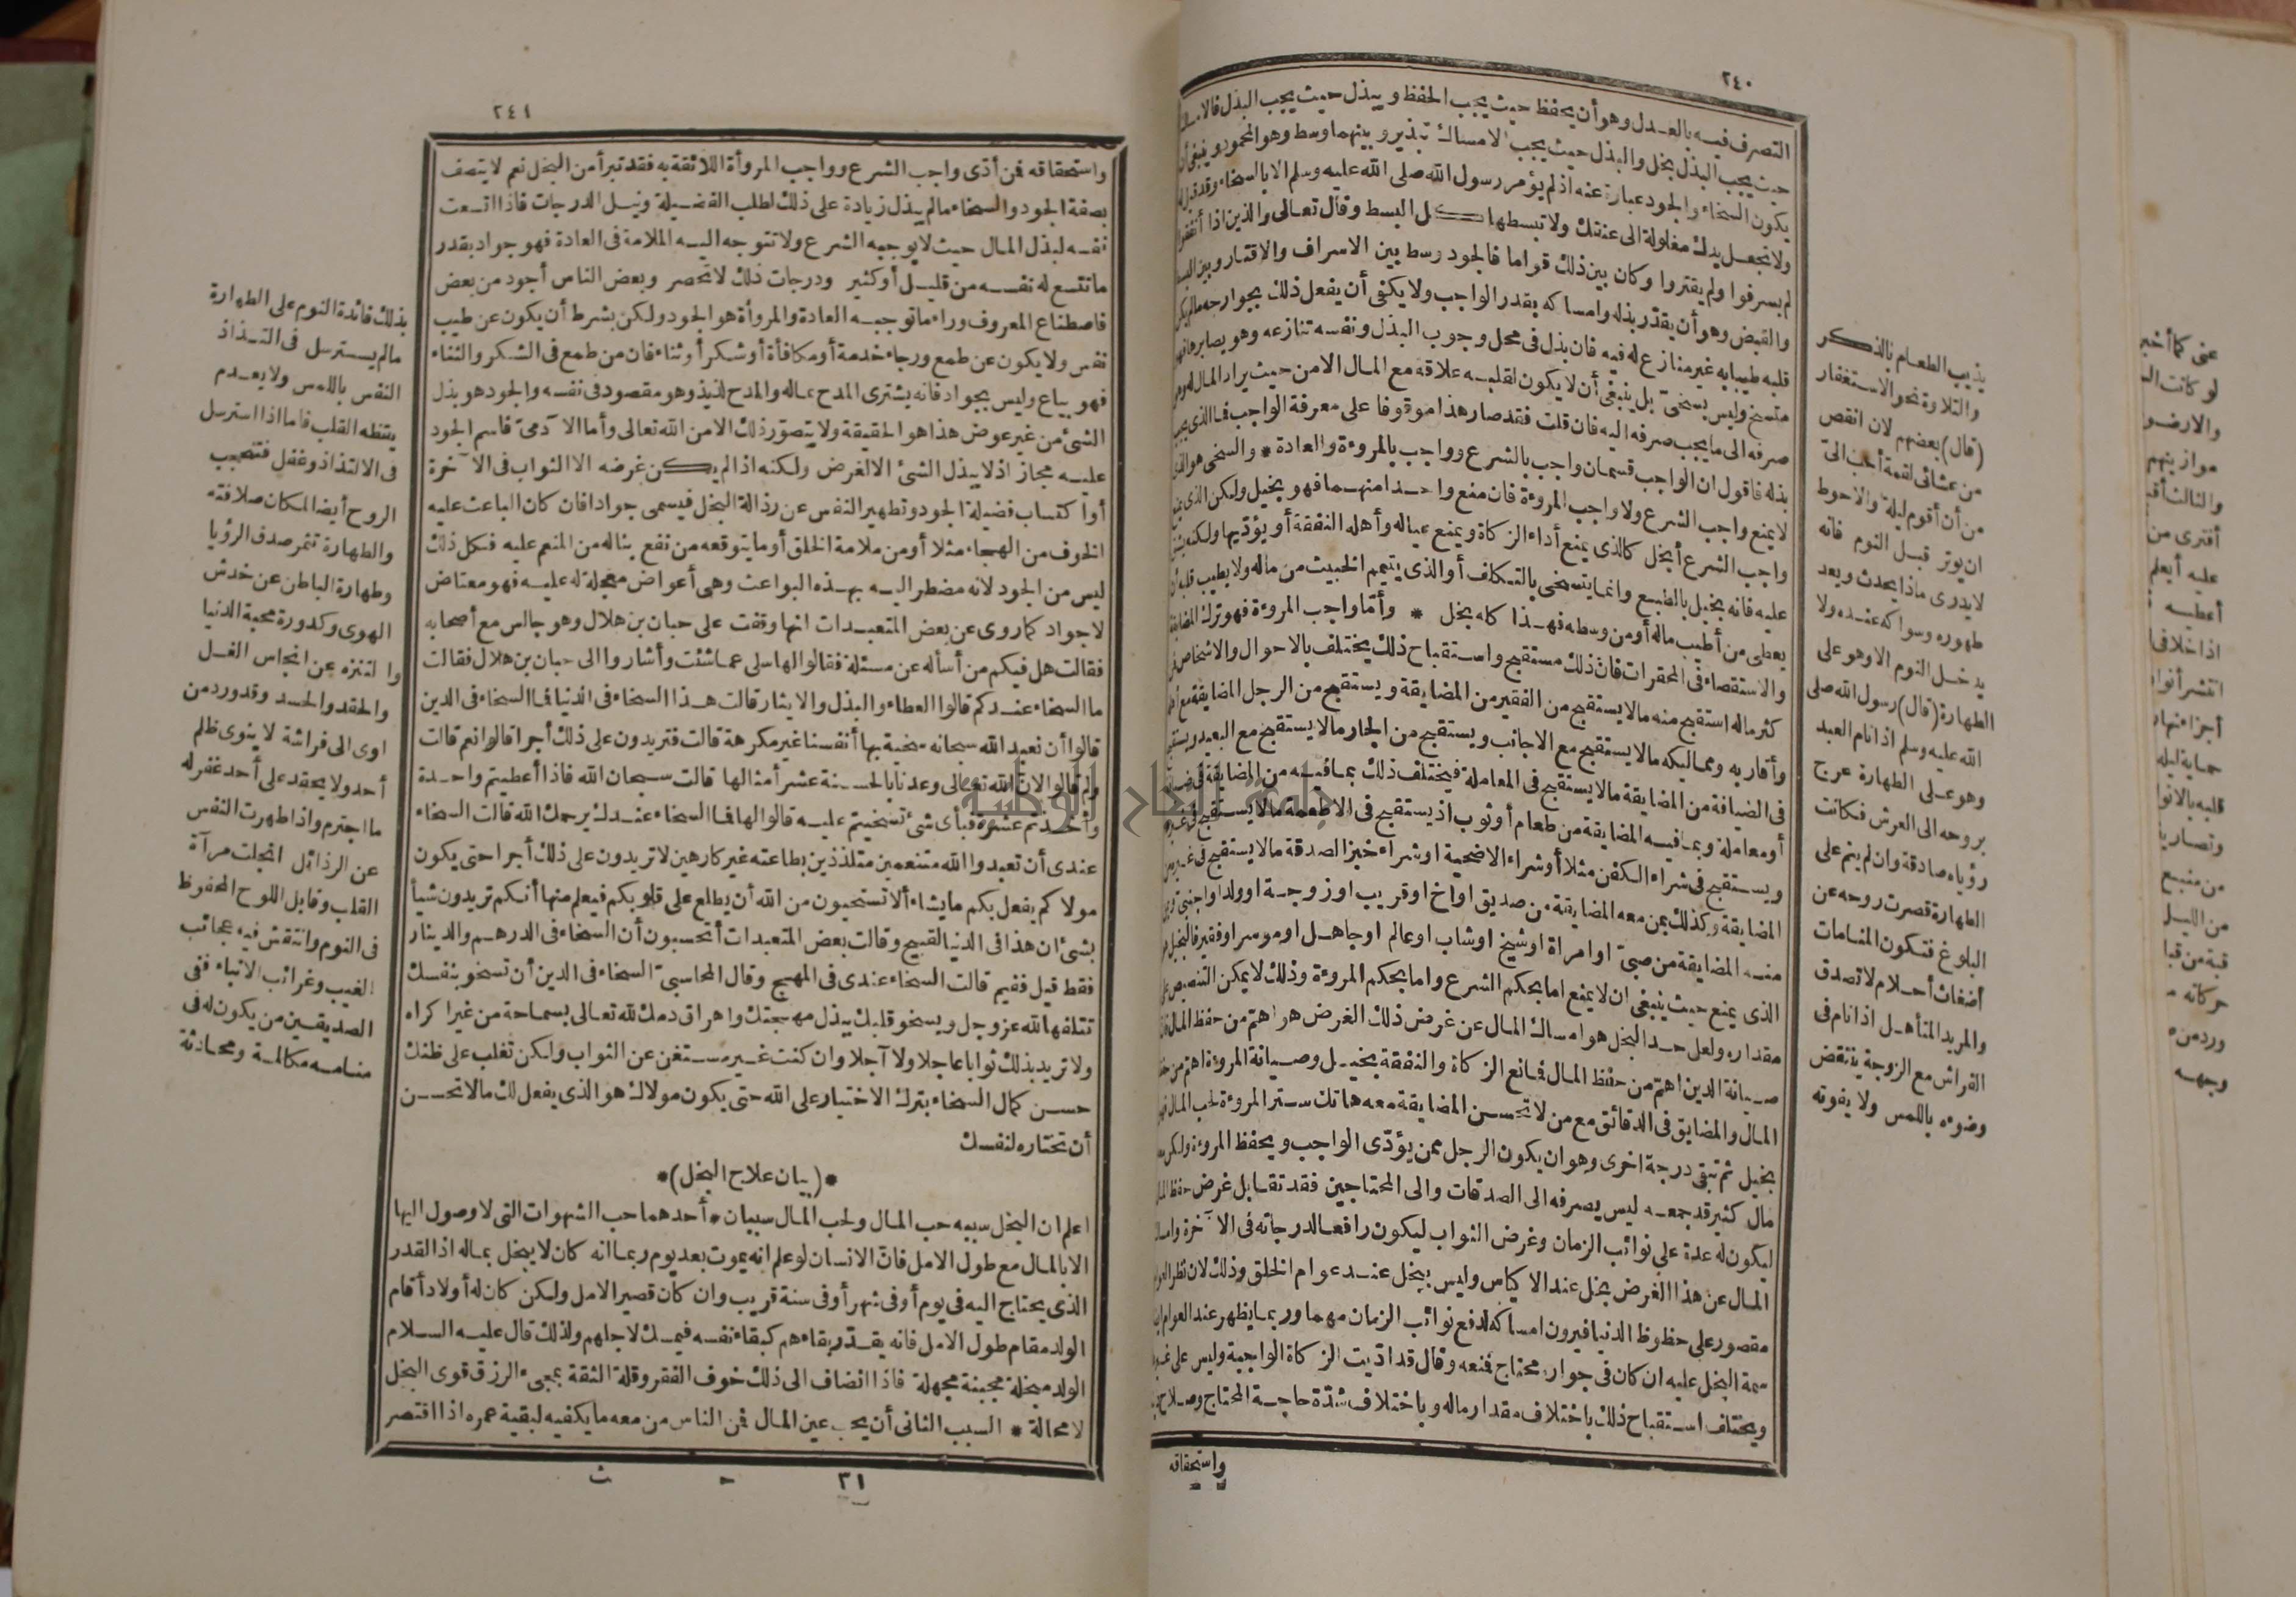 ٢٤٠
التصرف فيه بالعدل وهو أن يحفظ حيث يجب الحفظ ويبذل حيث يجب البذل فالامساك
حيث يجب البذل بخل والبذل حيث يجب الامساك تبذير وبينهما وسط وهو المحمود وينبغي أن
يكون السخاء والجود عبارة عنه اذ لم يؤمر رسول الله صلى الله عليه وسلم الا بالسخاء وقد قيل له
ولا تجعل يدك مغلولة الى عنقك ولا تبسطها كل البسط وقال تعالى والذين اذا أنفقوا
لم يسرفوا ولم يقتروا وكان بين ذلك قواما فالجود وسط بين الاسراف والاقتار وبين البسط
والقبض وهو أن يقدّر بذله وامساكه بقدر الواجب ولا يكفى أن يفعل ذلك بجوارحه مالم يكن
قلبه طيبا به غير منازع له فيه فان بذل فى محل وجوب البذل ونفسه تنازعه وهو يصابرها فهو
متسخ وليس بسخىّ بل ينبغى أن لا يكون لقلبه علاقة مع المال الا من حيث يراد المال له وهو
صرفه الى ما يجب صرفه اليه فان قلت فقد صار هذا موقوفا على معرفة الواجب فما الذى يجب
بذله فاقول ان الواجب قسمان واجب بالشرع وواجب بالمروءة والعادة * والسخى هو الذى
لا يمنع واجب الشرع ولا واجب المروءة فان منع واحدا منهما فهو بخيل ولكن الذى يمنع
واجب الشرع أبخل كالذى يمنع أداء الزكاة ويمنع عياله وأهله النفقة أو يؤدّيها ولكنه يشق
عليه فانه بخيل بالطبع وانما يتسخى بالتكلف أو الذى يتيمم الخبيث من ماله ولا يطيب قلبه أن
يعطى من أطيب ماله أو من وسطه فهذا كله بخل * وأمّا واجب المروءة فهو ترك المضايقة
والاستقصاء فى المحقرات فانّ ذلك مستقبح واستقباح ذلك يختلف بالاحوال والاشخاص فمن
كثر ماله استقبح منه مالا يستقبح من الفقير من المضايقة ويستقبح من الرجل المضايقة مع أهله
وأقاربه ومماليكه مالا يستقبح مع الاجانب ويستقبح من الجار مالا يستقبح مع البعيد ويستقبح
فى الضيافة من المضايقة مالا يستقبح فى المعاملة فيختلف ذلك بما فيه من المضايقة فى ضيافة
أو معاملة وبما فيه المضايقة من طعام أو ثوب اذ يستقبح فى الاطعمة مالا يستقبح فى غيرها
ويستقبح فى شراء الكفن مثلا أو شراء الاضحية او شراء خبز الصدقة مالا يستقبح فى غيره من
المضايقة وكذلك بمن معه المضايقة من صديق او اخ او قريب او زوجة او ولد او اجنبى وبمن
منه المضايقة من صبىّ او امراة او شيخ او شاب او عالم او جاهل او موسر او فقير فالبخيل هو
الذى يمنع حيث ينبغى ان لا يمنع اما بحكم الشرع واما بحكم المروءة وذلك لا يمكن التنصيص على
مقداره ولعل حد البخل هو امساك المال عن غرض ذلك الغرض هو اهمّ من حفظ المال فان
صيانة الدين اهمّ من حفظ المال فمانع الزكاة والنفقة بخيل وصيانة المروءة اهمّ من حفظ
المال والمضايق فى الدقائق مع من لا تحسن المضايقة معه هاتك ستر المروءة لحب المال فهو
بخيل ثم تبقى درجة اخرى وهو ان يكون الرجل ممن يؤدّى الواجب ويحفظ المروءة ولكن معه
مال كثير قد جمعه ليس يصرفه الى الصدقات والى المحتاجين فقد تقابل غرض حفظ المال
ليكون له عدة على نوائب الزمان وغرض الثواب ليكون رافعا لدرجاته فى الآخرة وامساك
المال عن هذا الغرض بخل عند الاكياس وليس ببخل عند عوام الخلق وذلك لان نظر العوام
مقصور على حظوظ الدنيا فيرون امساكه لدفع نوائب الزمان مهما وربما يظهر عند العوام ايضا
سمة البخل عليه ان كان فى جواره محتاج فمنعه وقال قد ادّيت الزكاة الواجبة وليس على غيرها
ويختلف استقباح ذلك باختلاف مقدار ماله وباختلاف شدّة حاجة المحتاج وصلاح دينه
واستحقاقه
يذيب الطعام بالذكر
والتلاوة نحو الاستغفار
(قال) بعضهم لان انقص
من عشائى لقمة أحب الىّ
من أن أقوم ليلة والاحوط
ان يوتر قبل النوم فانه
لا يدرى ماذا يحدث ويعد
طهوره وسواكه عنده ولا
يدخل النوم الا وهو على
الطهارة (قال) رسول الله صلى
الله عليه وسلم اذا نام العبد
وهو على الطهارة عرج
بروحه الى العرش فكانت
رؤياه صادقة وان لم ينم على
الطهارة قصرت روحه عن
البلوغ فتكون المنامات
أضغاث أحلام لا تصدق
والمريد المتأهل اذا نام فى
الفراش مع الزوجة ينتقض
وضوءه باللمس ولا يفوته
٢٤١
واستحقاقه فمن أدّى واجب الشرع وواجب المروأة اللائقة به فقد تبرأ من البخل نعم لا يتصف
بصفة الجود والسخاء مالم يبذل زيادة على ذلك لطلب الفضيلة ونيل الدرجات فاذا اتسعت
نفسه لبذل المال حيث لا يوجبه الشرع ولا تتوجه اليه الملامة فى العادة فهو جواد بقدر
ما تتسع له نفسه من قليل أو كثير ودرجات ذلك لا تحصر وبعض الناس أجود من بعض
فاصطناع المعروف وراء ما توجبه العادة والمروأة هو الجود ولكن بشرط أن يكون عن طيب
نفس ولا يكون عن طمع ورجاء خدمة أو مكافأة أو شكر أو ثناء فان من طمع فى الشكر والثناء
فهو بياع وليس بجواد فانه يشترى المدح بماله والمدح لذيذ وهو مقصود فى نفسه والجود هو بذل
الشئ من غير عوض هذا هو الحقيقة ولا يتصوّر ذلك الا من الله تعالى وأما الآدمىّ فاسم الجود
عليه مجاز اذ لا يبذل الشئ الا لغرض ولكنه اذا لم يكن غرضه الا الثواب فى الآخرة
أو اكتساب فضيلة الجود وتطهير النفس عن رذالة البخل فيسمى جوادا فان كان الباعث عليه
الخوف من الهجاء مثلا أو من ملامة الخلق أو ما يتوقعه من نفع يناله من المنعم عليه فكل ذلك
ليس من الجود لانه مضطر اليه بهذه البواعث وهى أعواض معجلة له عليه فهو معتاض
لا جواد كما روى عن بعض المتعبدات انها وقفت على حبان بن هلال وهو جالس مع أصحابه
فقالت هل فيكم من أسأله عن مسئلة فقالوا لها سلى عما شئت وأشاروا الى حبان بن هلال فقالت
ما السخاء عندكم قالوا العطاء والبذل والايثار قالت هذا السخاء فى الدنيا فما السخاء فى الدين
قالوا أن نعبد الله سبحانه سخية بها أنفسنا غير مكرهة قالت فتريدون على ذلك أجرا قالوا نعم قالت
ولم قالوا لان الله تعالى وعدنا بالحسنة عشر أمثالها قالت سبحان الله فاذا أعطيتم واحدة
وأخذتم عشرة فبأى شئ تسخيتم عليه قالوا لها فما السخاء عندك يرحمك الله قالت السخاء
عندى أن تعبدوا الله متنعمين متلذذين بطاعته غير كارهين لا تريدون على ذلك أجرا حتى يكون
مولاكم يفعل بكم ما يشاء ألا تستحيون من الله أن يطلع على قلوبكم فيعلم منها أنكم تريدون شيأ
بشئ ان هذا فى الدنيا لقبيح وقالت بعض المتعبدات أتحسبون أن السخاء فى الدرهم والدينار
فقط قيل ففيم قالت السخاء عندى فى المهج وقال المحاسبىّ السخاء فى الدين أن تسخو بنفسك
تتلفها لله عز وجل ويسخو قلبك ببذل مهجتك واهراق دمك لله تعالى بسماحة من غير اكراه
ولا تريد بذلك ثوابا عاجلا ولا آجلا وان كنت غير مستغن عن الثواب ولكن تغلب على ظنك
حسن كمال السخاء بترك الاختيار على الله حتى يكون مولاك هو الذى يفعل لك مالا تحسن
أن تختاره لنفسك
*(بيان علاج البخل)*
اعلم ان البخل سببه حب المال ولحب المال سببان * أحدهما حب الشهوات التى لا وصول اليها
الا بالمال مع طول الامل فانّ الانسان لو علم انه يموت بعد يوم ربما انه كان لا يبخل بماله اذ القدر
الذى يحتاج اليه فى يوم أو فى شهر أو فى سنة قريب وان كان قصير الامل ولكن كان له أولاد أقام
الولد مقام طول الامل فانه يقدّر بقاءهم كبقاء نفسه فيمسك لاجلهم ولذلك قال عليه السلام
الولد مبخلة مجبنة مجهلة فاذا انضاف الى ذلك خوف الفقر وقلة الثقة بمجىء الرزق قوى البخل
لا محالة * السبب الثانى أن يحب عين المال فمن الناس من معه ما يكفيه لبقية عمره اذا اقتصر
٣١ ث
بذلك فائدة النوم على الطهارة
مالم يسترسل فى التذاذ
النفس باللمس ولا يعدم
يتقظه القلب فاما اذا استرسل
فى الالتذاذ وغفل فتحجب
الروح أيضا لمكان صلافته
والطهارة تثمر صدق الرؤيا
وطهارة الباطن عن خدش
الهوى وكدورة محبة الدنيا
والتنزه عن انجاس الغل
والحقد والحسد وقد ورد من
اوى الى فراشه لا ينوى ظلم
أحد ولا يحقد على أحد غفر له
ما اجترم واذا طهرت النفس
عن الرذائل انجلت مرآة
القلب وقابل اللوح المحفوظ
فى النوم وانتقش فيه عجائب
الغيب وغرائب الانباء ففى
الصديقين من يكون له فى
منامه مكالمة ومحادثة
جامعة النجاح الوطنية